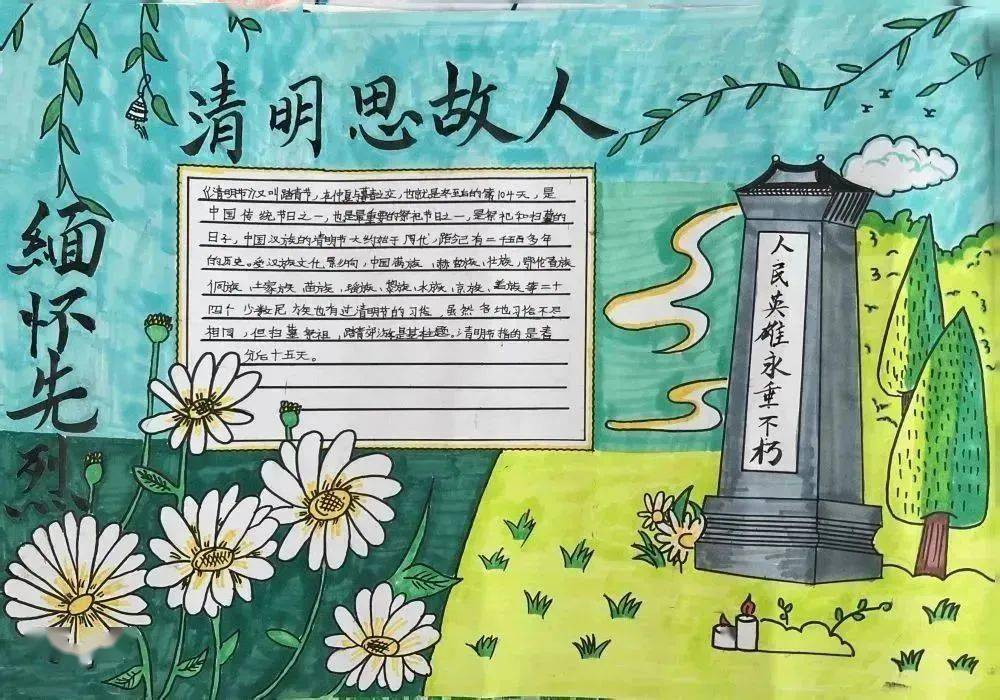 清明思故人
缅怀先烈
《清明节》又叫踏青节，在仲春与暮春之交，也就是冬至后的第104天，是
中国传统节日之一，也是最重要的祭祀节日之一，是祭祀和扫墓的
日子，中国汉族的清明节大约始于周代，距今已有二千五百多年
的历史。受汉族文化影响，中国满族、赫哲族、壮族、鄂伦春族
侗族、土家族、苗族、瑶族、黎族、水族、京族、羌族等二十
四个少数民族也有过清明节的习俗，虽然各地习俗不尽
相同，但扫墓祭祖，踏青郊游是基本主题。清明节指的是春
分后十五天。
人民英雄永垂不朽